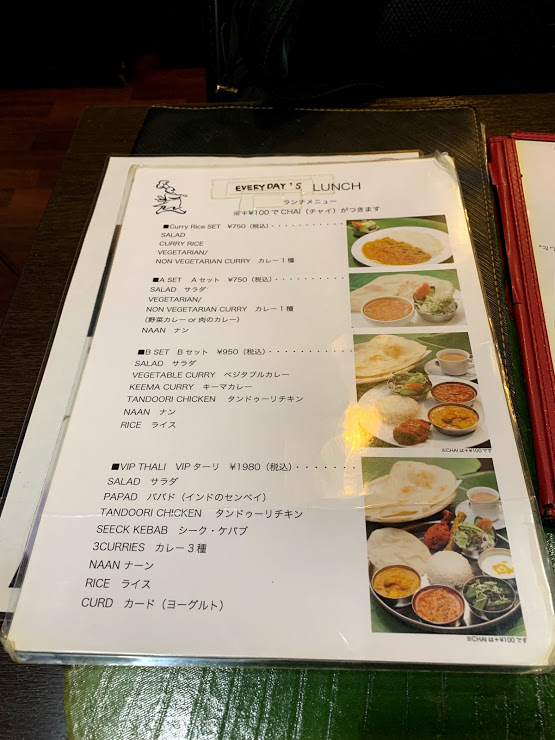 EVERYDAY'S LUNCH
ランチメニュー
※+¥100でCHAI（チャイ）がつきます
■Curry Rice SET ¥750（税込）・・・・・・・・・・・
SALAD
CURRY RICE
VEGETARIAN/
NON VEGETARIAN CURRY カレー1種
■A SET Aセット ¥750（税込）・・・・・・・・・・・
SALAD サラダ
VEGETARIAN/
NON VEGETARIAN CURRY カレー1種
（野菜カレー or 肉のカレー）
NAAN ナン
■B SET Bセット ¥950（税込）・・・・・・・・・・・
SALAD サラダ
VEGETABLE CURRY ベジタブルカレー
KEEMA CURRY キーマカレー
TANDOORI CHICKEN タンドゥーリチキン
NAAN ナン
RICE ライス
※CHAIは+¥100です
■VIP THALI VIPターリ ¥1980（税込）・・・・・・・
SALAD サラダ
PAPAD パパド（インドのセンベイ）
TANDOORI CHICKEN タンドゥーリチキン
SEECK KEBAB シーク・ケバブ
3CURRIES カレー3種
NAAN ナーン
RICE ライス
CURD カード（ヨーグルト）
※CHAIは+¥100です